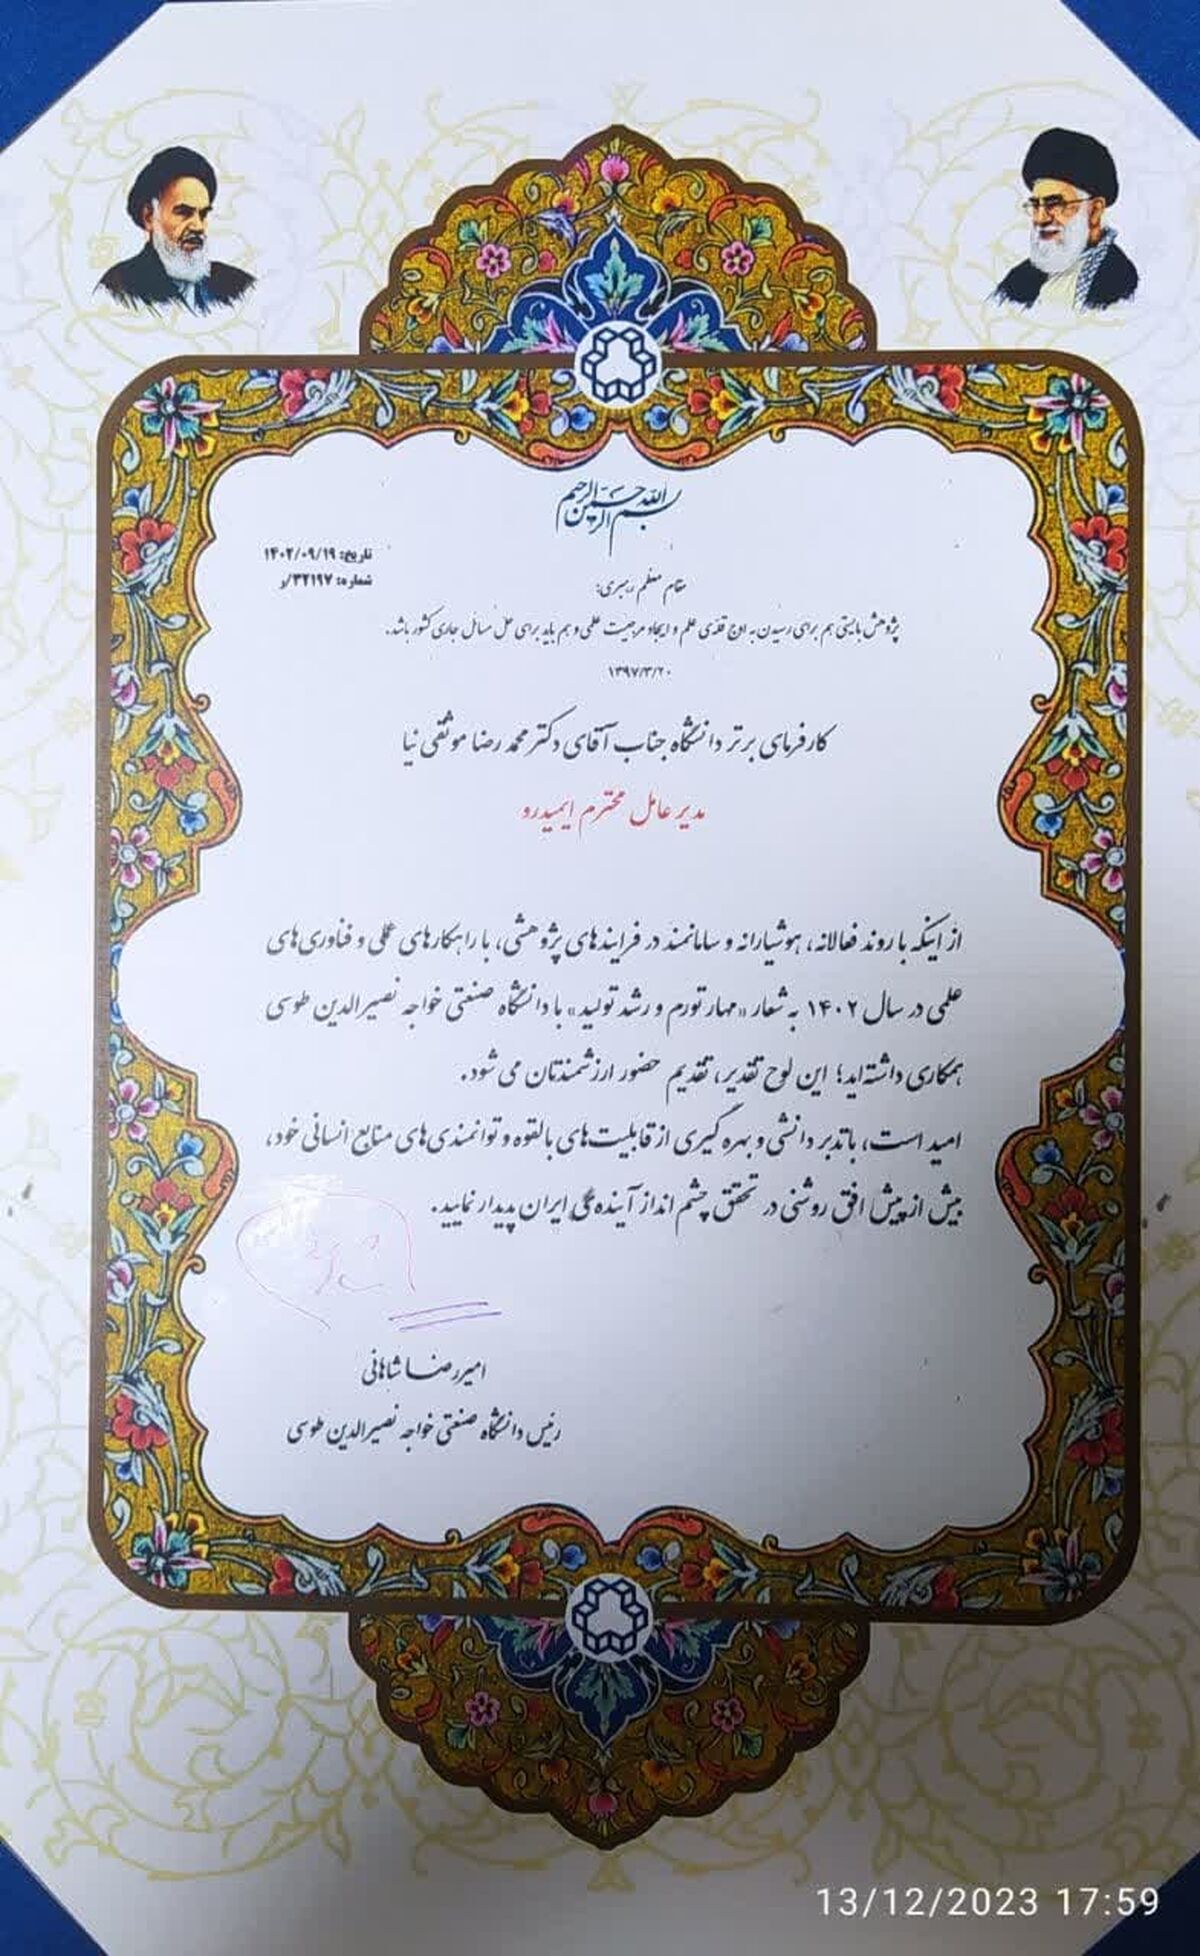 بسم الله الرحمن الرحیم
تاریخ: ۱۴۰۲/۰۹/۱۹
شماره: ۳۲۱۹۷/ر
مقام معظم رهبری:
پژوهش بایستی هم برای رسیدن به اوج قله‌ی علم و ایجاد مرجعیت علمی و هم باید برای حل مسائل جاری کشور باشد.
۱۳۹۷/۳/۲۰
کارفرمای برتر دانشگاه جناب آقای دکتر محمد رضا موثقی نیا
مدیر عامل محترم ایمیدرو
از اینکه با روند فعالانه، هوشیارانه و سامانمند در فرایندهای پژوهشی، با راهکارهای عملی و فناوری‌های
علمی در سال ۱۴۰۲ به شعار «مهار تورم و رشد تولید» با دانشگاه صنعتی خواجه نصیرالدین طوسی
همکاری داشته‌اید؛ این لوح تقدیر، تقدیم حضور ارزشمندتان می شود.
امید است، با تدبر دانشی و بهره گیری از قابلیت‌های بالقوه و توانمندی‌های منابع انسانی خود،
بیش از پیش افق روشنی در تحقق چشم انداز آینده‌گی ایران پدیدار نمایید.
امیررضا شاهانی
رئیس دانشگاه صنعتی خواجه نصیرالدین طوسی
13/12/2023 17:59